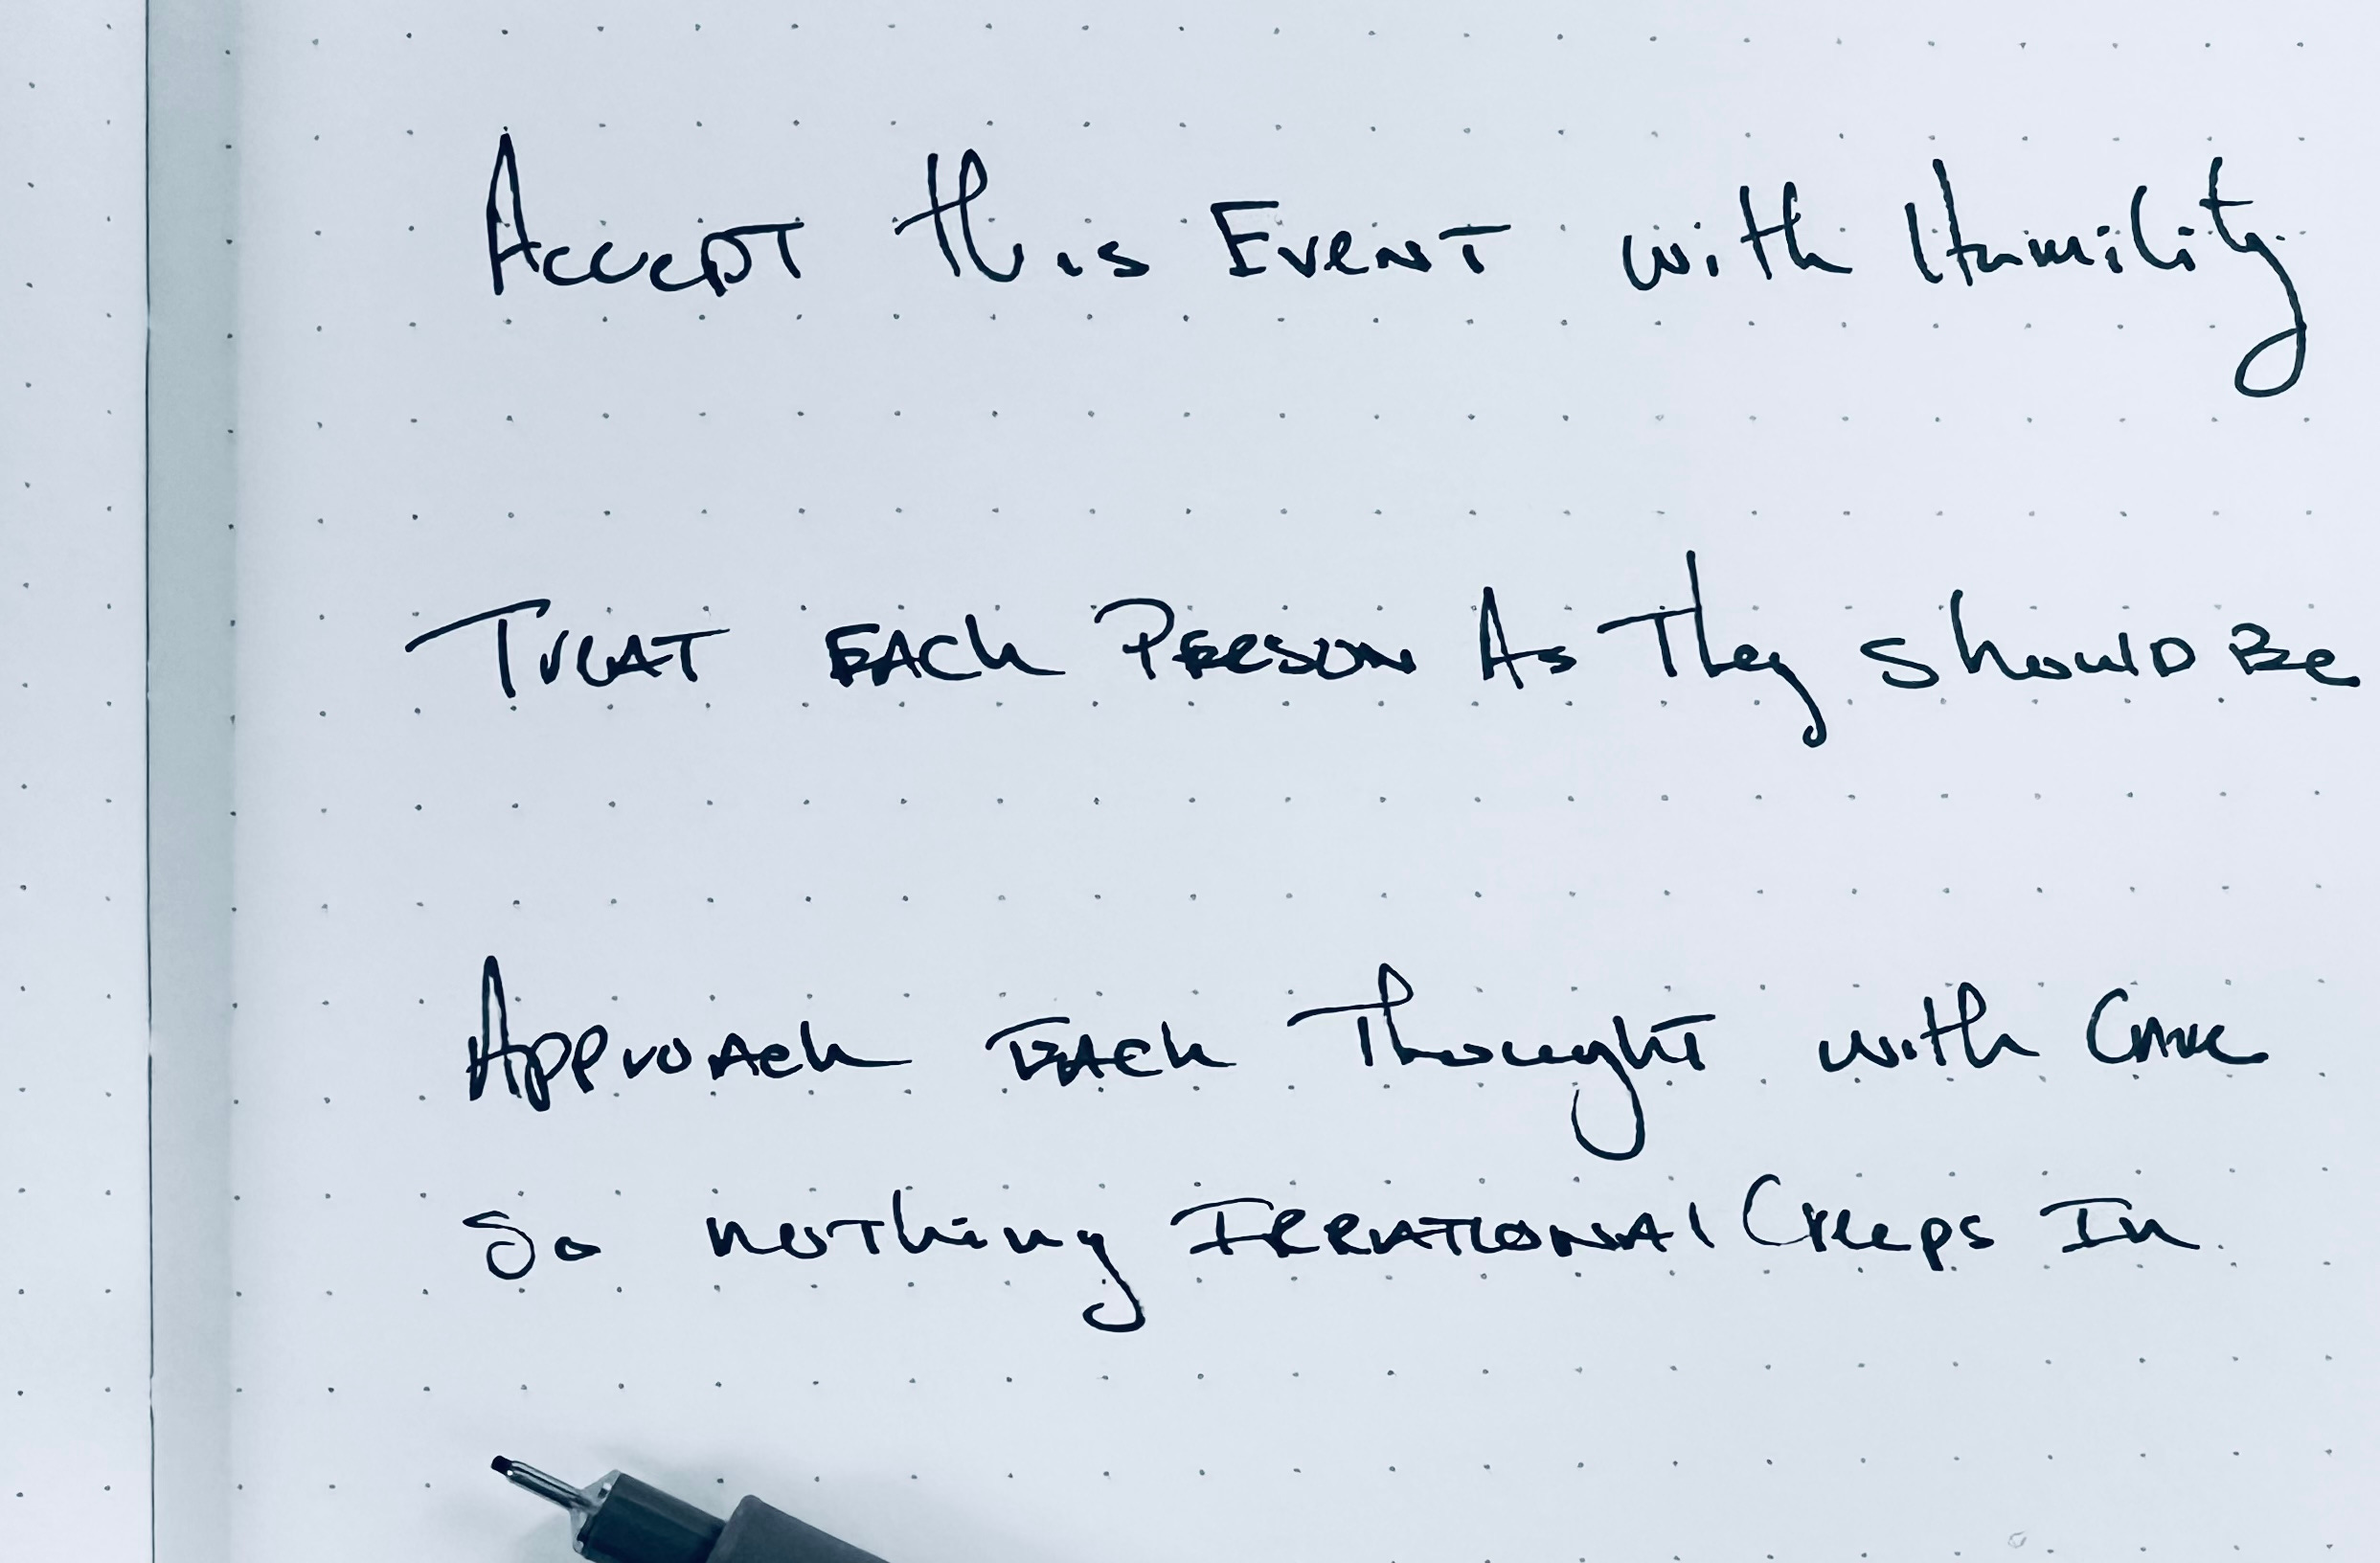 Accept this Event with Humility
Treat Each Person As They Should Be
Approach Each Thought with Care
So nothing Irrational Creeps In.